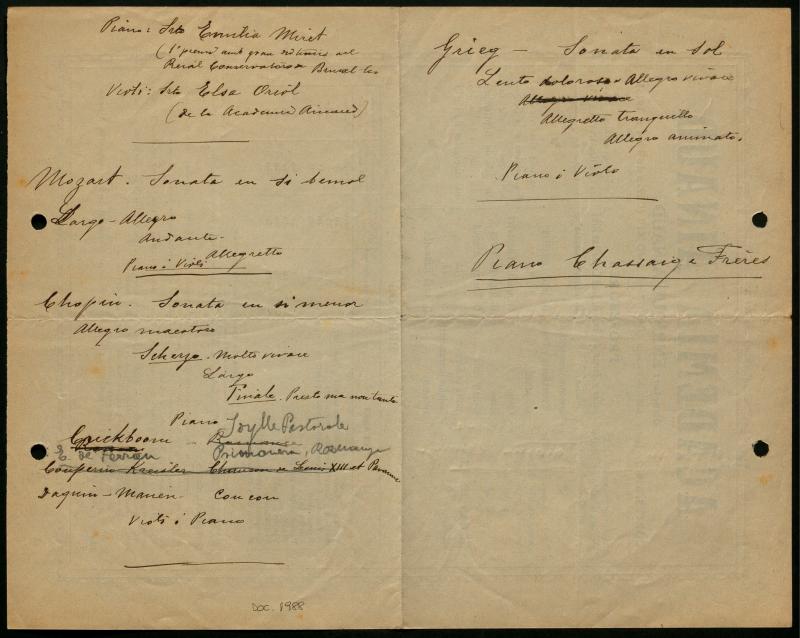 Piano: Srta Emilia Miret
(1er premi amb gran distinció del
Reial Conservatori de Brusel·les
Violí: Srta Elsa Oriol
(de la Academia Ainaud)
Mozart. Sonata en si bemol
Largo - Allegro
Andante -
Allegretto
Piano i Violí
Chopin. Sonata en si menor
Allegro maestoso
Scherzo. Molto vivace
Largo
Finale. Presto ma non tanto
Piano
Crickboom - Romanza
Idylle Pastorale
E. de Ferran Primavera, Romança
Couperin Kreisler Chanson de Louis XIII et Pavane
Daquin - Manén - Coucou
Violí i Piano
DOC. 1988
Grieg - Sonata en sol
Lento doloroso Allegro vivace
Allegro vivace
Allegretto tranquillo
Allegro animato.
Piano i Violí
Piano Chassaigne Frères